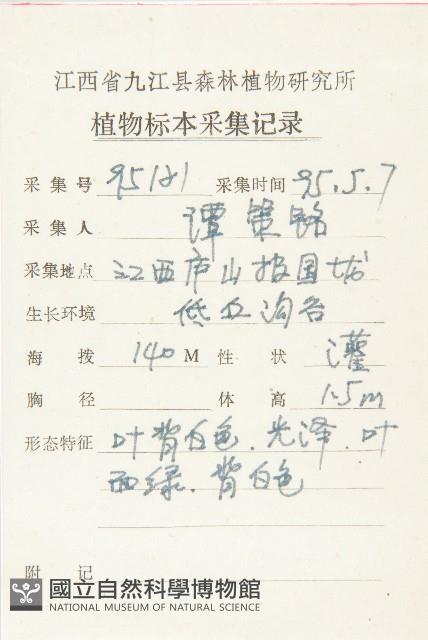 江西省九江县森林植物研究所
植物标本采集记录
采集号 95121 采集时间 95.5.7
采集人 谭策铭
采集地点 江西庐山报国坡
生长环境 低丘沟谷
海拨 140M 性状 灌
胸径 体高 1.5m
形态特征 叶背白色.光泽.叶
面绿.背白色
附记
國立自然科學博物館
NATIONAL MUSEUM OF NATURAL SCIENCE